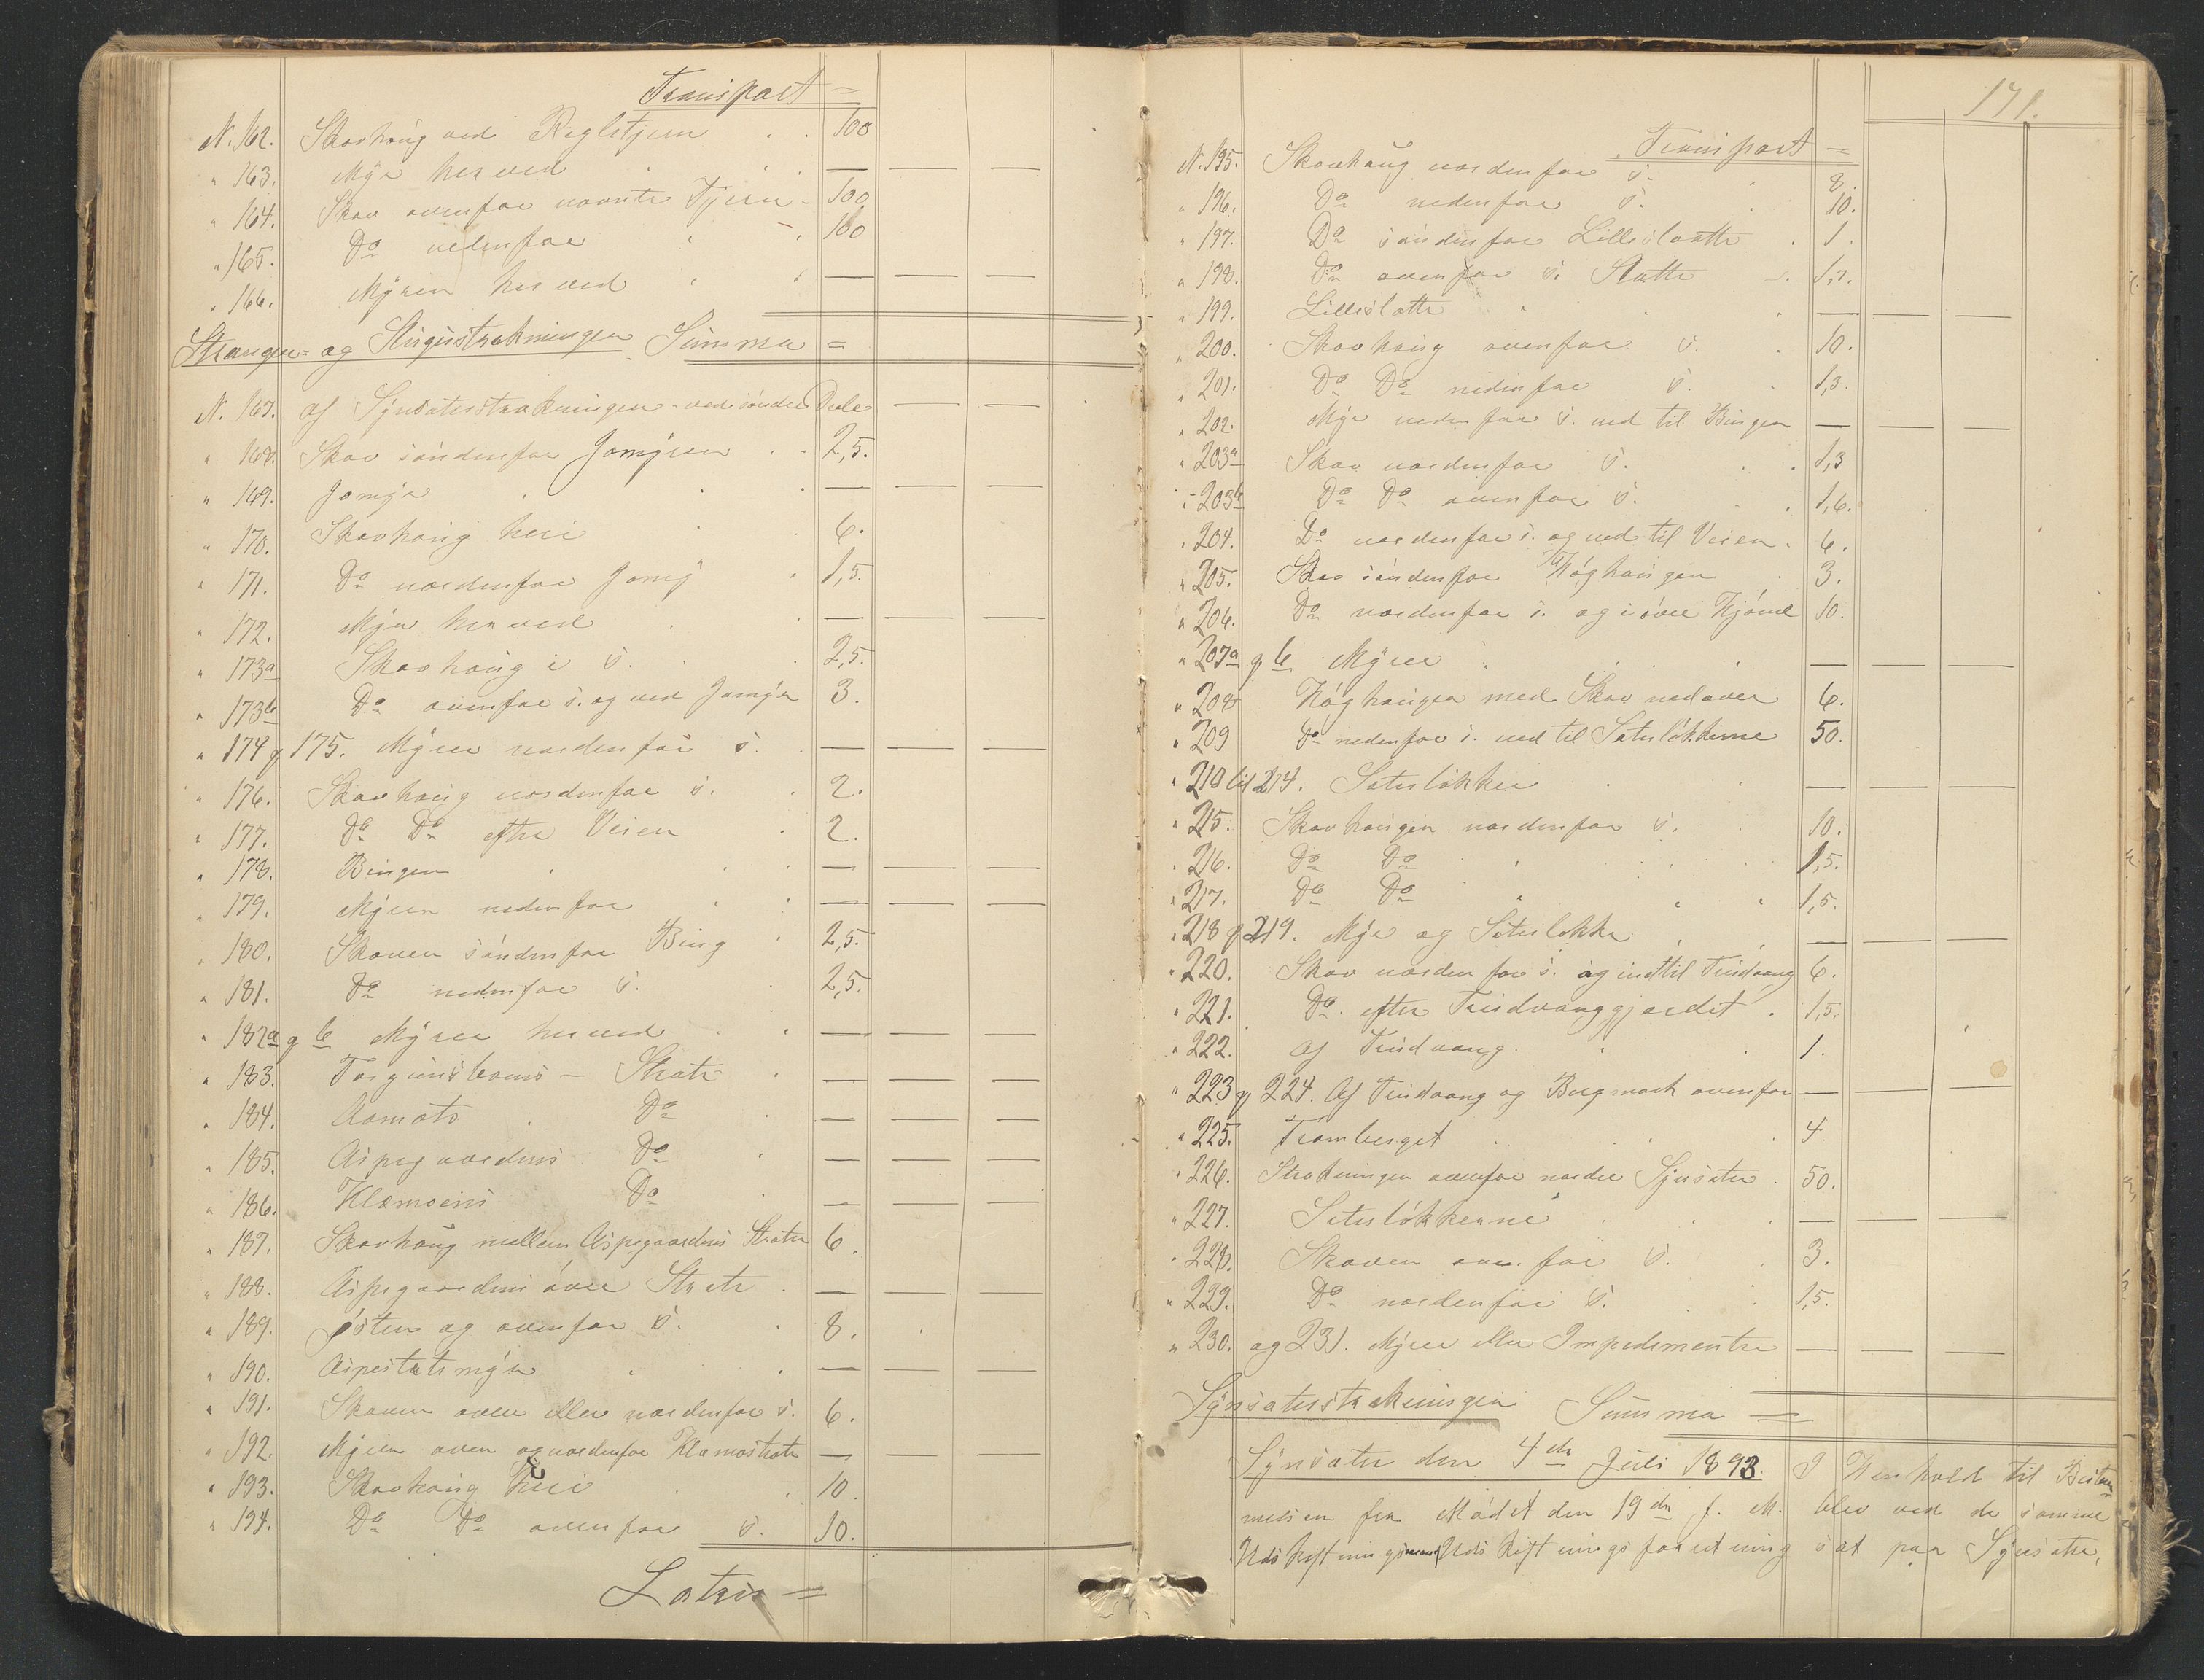 Transport =
N. 162. Skovhaug ved Reglstjern . . 100
" 163. Myr herved . . . — — —
" 164. Skov ovenfor nævnte Tjern - 100
" 165. Do nedenfor " " 100
" 166. Myren herved " " — — —
Strangen- og Stugustrækningen Summa =
N. 167. af Synsæterstrækningen ved søndre Dele — —
" 168. Skov søndenfor Jomyren . . 2,5.
" 169. Jomyr . . . — — —
" 170. Skovhaug heri . . 6.
" 171. Do nordenfor Jomy . 1,5.
" 172. Myr herved . . — — —
" 173a Skovhaug i s. . . 2,5.
" 173b Do ovenfor s. og ved Jomyr 3.
" 174 g 175. Myrer nordenfor s. . — — —
" 176. Skovhaug nordenfor s. . 2.
" 177. Do Do efter Veien . 2.
" 178. Bingen . . . — — —
" 179. Myren nedenfor . . — — —
" 180. Skoven søndenfor Bing . 2,5.
" 181. Do nedenfor s. . 2,5.
" 182a g b Myrer herved . . — — —
" 183. Torgunsboms - Stratr . — — —
" 184. Aamots . Do . — — —
" 185. Aspegaardens Do . — — —
" 186. Klæmoens Do . — — —
" 187. Skovhaug mellem Aspegaardens Stratr 6.
" 188. Aspegaardens øvre Stratr . — — —
" 189. Østen og ovenfor s. . 8.
" 190. Aspestatsmyr . . — — —
" 191. Skoven oven eller nordenfor s. 6.
" 192. Myren oven og nordenfor Klæmostratr — — —
" 193. Skovhaug heri . 10.
" 194. Do Do ovenfor s. 10.
Latus =
171.
Transport =
N. 195. Skovhaug nordenfor s. . 8.
" 196. Do nedenfor s. . 10.
" 197. Do søndenfor Lilleslaatte . 1.
" 198. Do ovenfor s. Slatte . 1,2.
" 199. Lilleslatte . . — — —
" 200. Skovhaug ovenfor s. . 10.
" 201. Do Do nedenfor s. . 1,3.
" 202. Myr nedenfor s. ned til Bingen — — —
" 203a Skov nordenfor s. . . 1,3
" 203b Do Do ovenfor s. . . 1,6.
" 204. Do nordenfor s. og ned til Veien . 6.
" 205. Skov søndenfor Høghaugen . 3.
" 206. Do nordenfor s. og i øvre Hjørne 10.
" 207a g b Myrer . . . — — —
" 208 Høghaugen med Skov nedover 6.
" 209 Do nedenfor s. ned til Sæterløkkerne 50.
" 210 til 214. Sæterløkker . . — — —
" 215. Skovhaugen nordenfor s. . 10.
" 216. Do Do . . . 1,5.
" 217. Do Do . . . 1,5.
" 218 g 219. Myr og Sæterløkke . . — — —
" 220. Skov nordenfor s. og indtil Trudvang 6.
" 221. Do efter Trudvanggjærdet . 1,5.
" 222. Af Trudvang . . . 1.
" 223 g 224. Af Trudvang og Bergmark ovenfor — — —
" 225. Tromberget . . . 4
" 226. Strækningen ovenfor nordre Synsæter . 50.
" 227. Sæterløkkerne . . . — — —
" 228. Skoven ovenfor s. . 3.
" 229. Do nordenfor s. . . 1,5.
" 230. og 231. Myrer eller Impedimenter — — —
Synsæterstrækningen Summa =
Synsæter den 4de Juli 1893. I Henhold til Bestem-
melsen fra Mødet den 19de f. M. blev ved de samme
Udskiftningsmænd Udskiftningsforretning sat paa Synsæter,